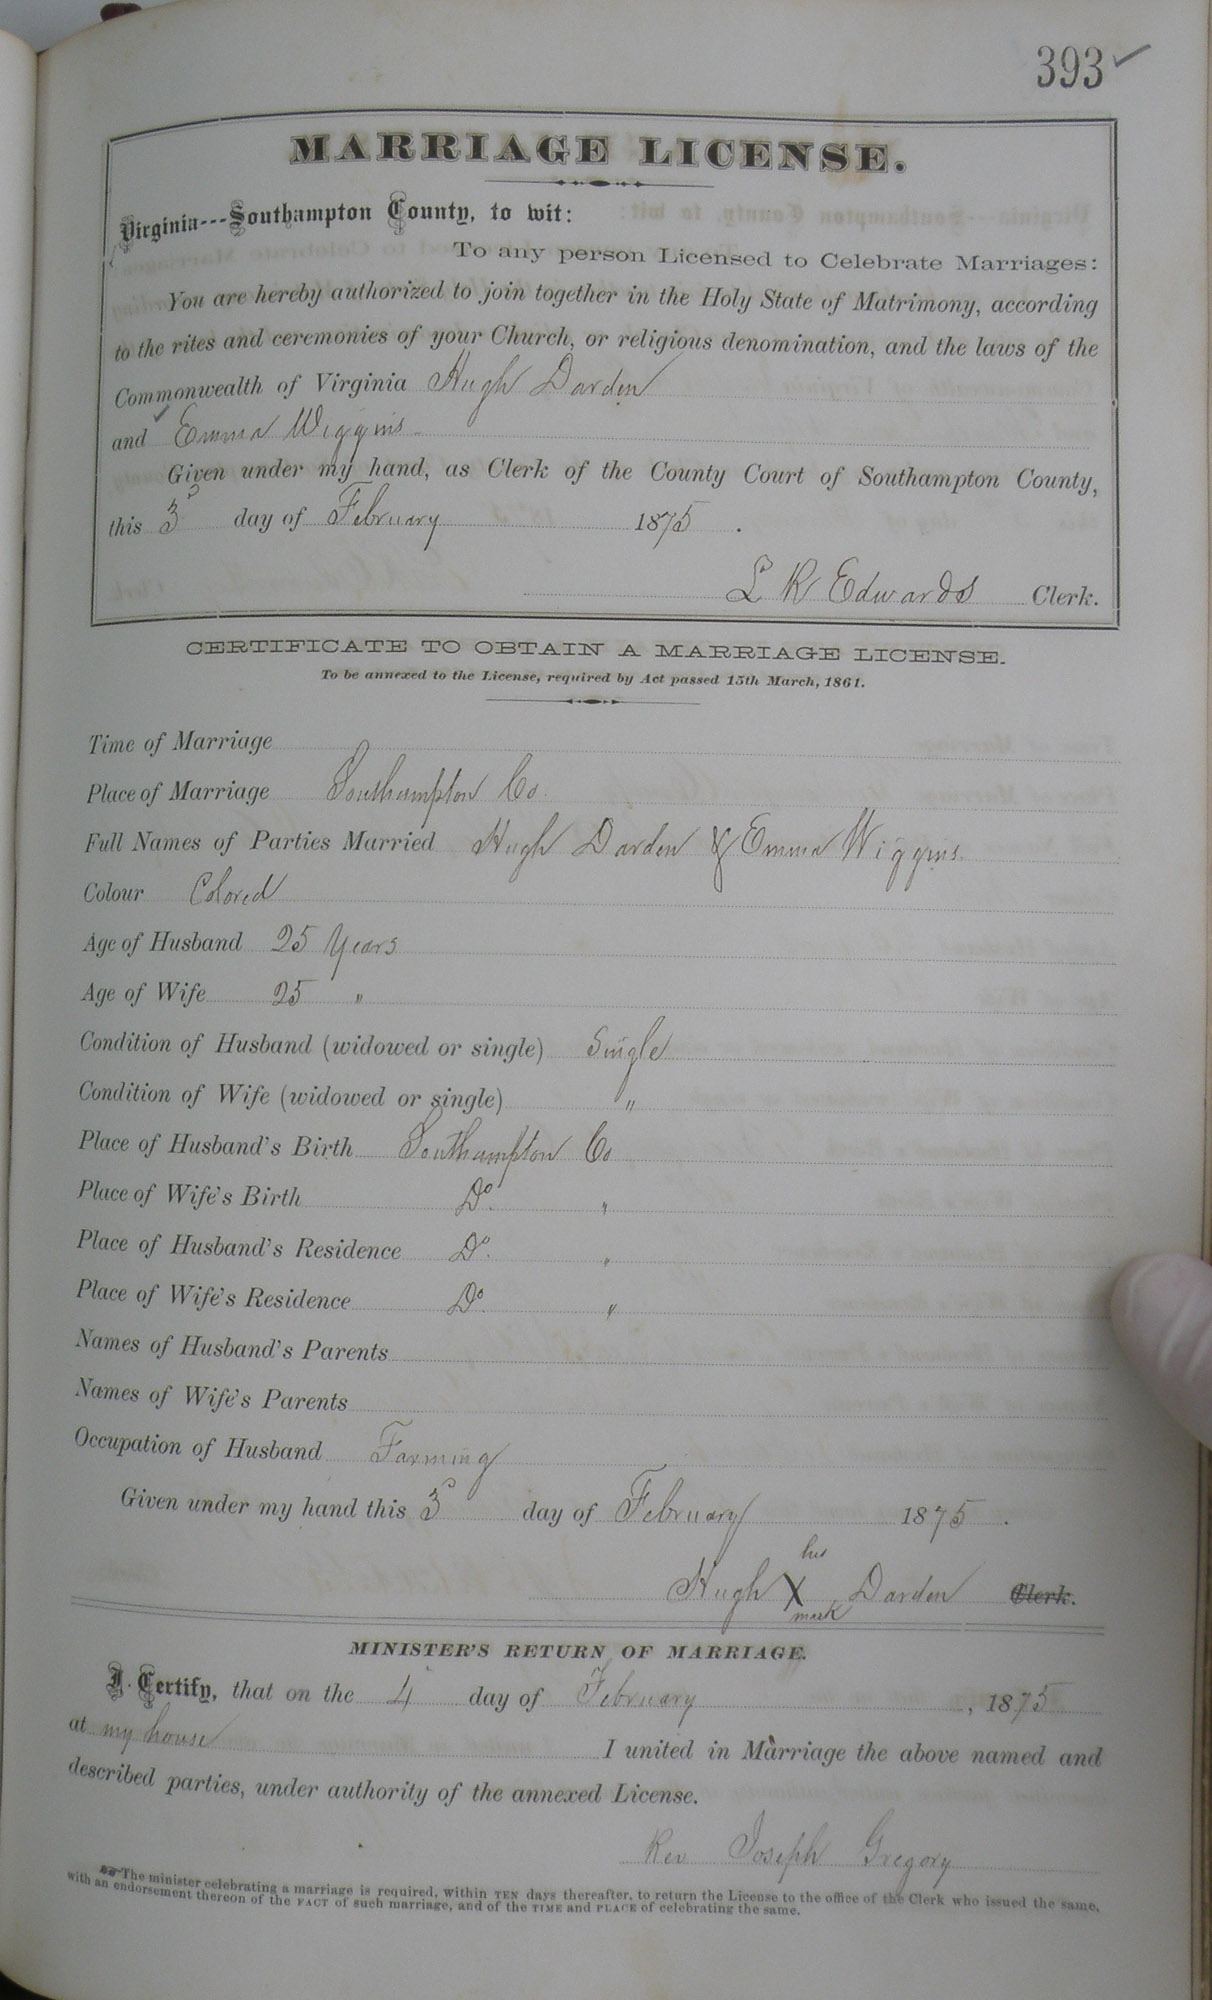 393
MARRIAGE LICENSE.
Virginia---Southampton County, to wit:
To any person Licensed to Celebrate Marriages:
You are hereby authorized to join together in the Holy State of Matrimony, according
to the rites and ceremonies of your Church, or religious denomination, and the laws of the
Commonwealth of Virginia Hugh Darden
and Emma Wiggins
Given under my hand, as Clerk of the County Court of Southampton County,
this 3 day of February 1875.
L R Edwards Clerk.
CERTIFICATE TO OBTAIN A MARRIAGE LICENSE.
To be annexed to the License, required by Act passed 15th March, 1861.
Time of Marriage
Place of Marriage Southampton Co.
Full Names of Parties Married Hugh Darden & Emma Wiggins.
Colour Colored
Age of Husband 25 Years
Age of Wife 25 "
Condition of Husband (widowed or single) Single
Condition of Wife (widowed or single) "
Place of Husband's Birth Southampton Co
Place of Wife's Birth Do. "
Place of Husband's Residence Do. "
Place of Wife's Residence Do. "
Names of Husband's Parents
Names of Wife's Parents
Occupation of Husband Farming
Given under my hand this 3 day of February 1875.
his
Hugh X Darden Clerk.
mark
MINISTER'S RETURN OF MARRIAGE.
I Certify, that on the 4 day of February, 1875
at my house I united in Marriage the above named and
described parties, under authority of the annexed License.
Rev Joseph Gregory
The minister celebrating a marriage is required, within TEN days thereafter, to return the License to the office of the Clerk who issued the same,
with an endorsement thereon of the FACT of such marriage, and of the TIME and PLACE of celebrating the same.